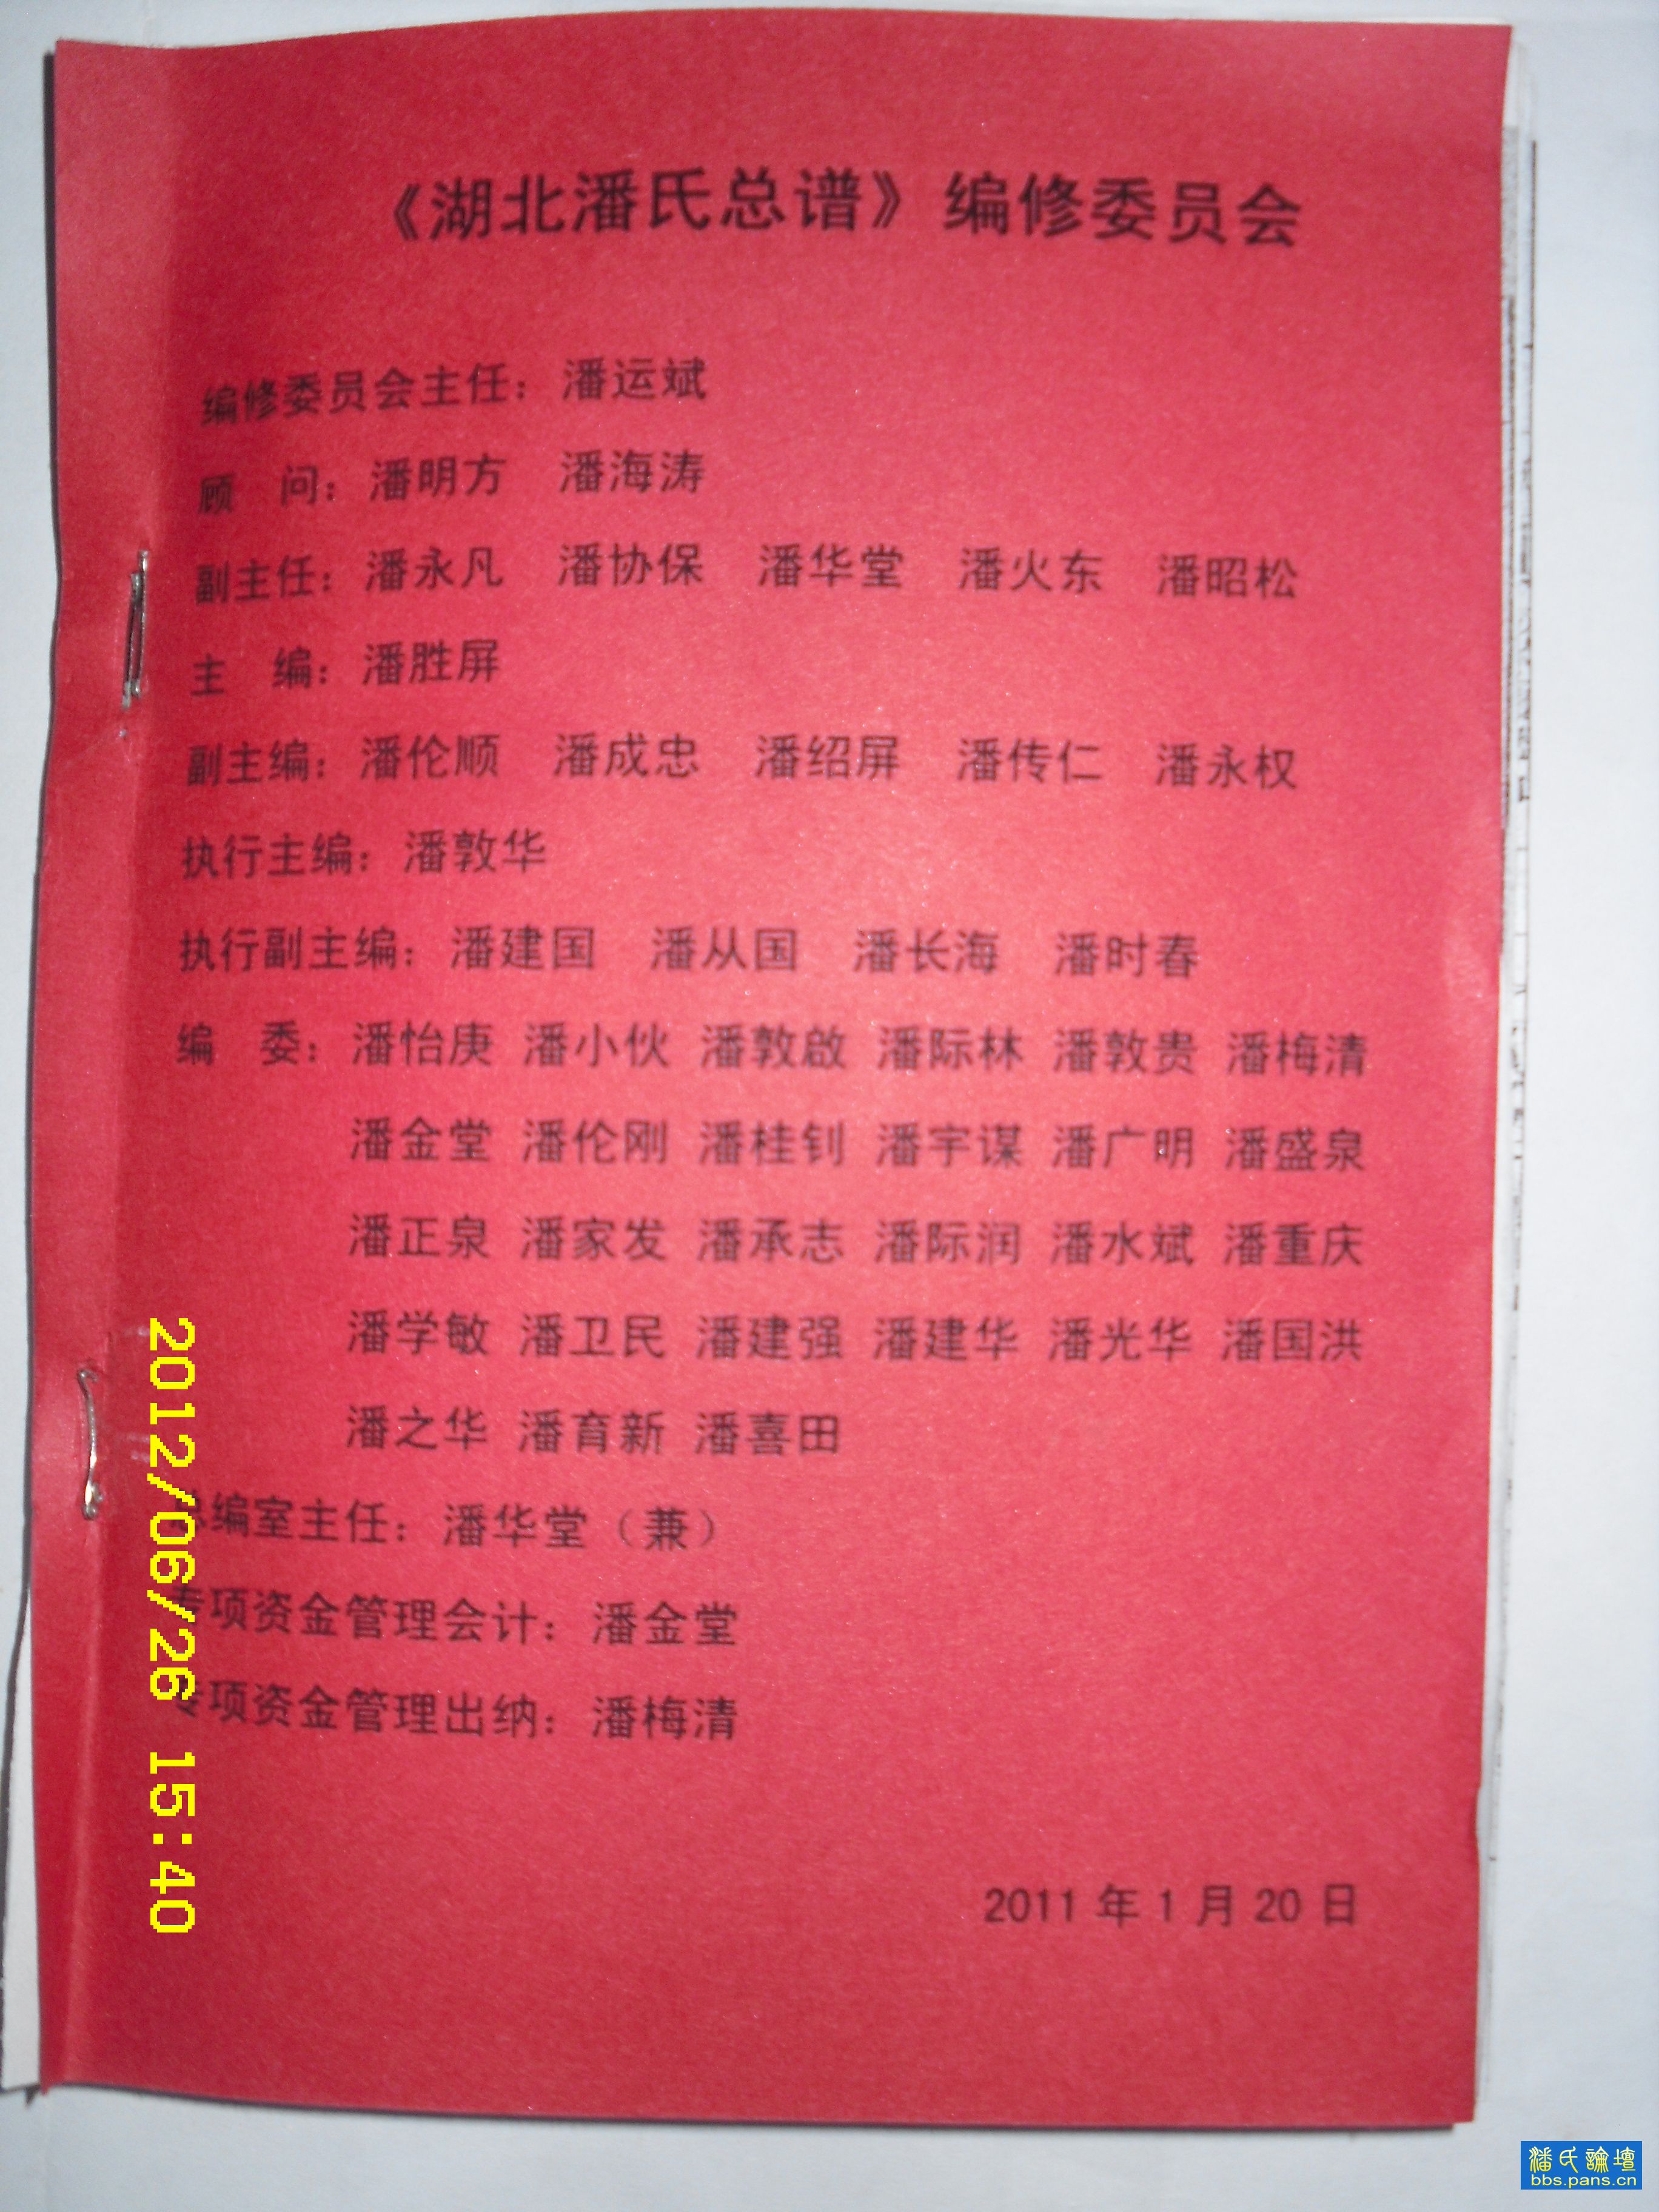 《湖北潘氏总谱》编修委员会
编修委员会主任：潘运斌
顾　问：潘明方　潘海涛
副主任：潘永凡　潘协保　潘华堂　潘火东　潘昭松
主　编：潘胜屏
副主编：潘伦顺　潘成忠　潘绍屏　潘传仁　潘永权
执行主编：潘敦华
执行副主编：潘建国　潘从国　潘长海　潘时春
编　委：潘怡庚 潘小伙 潘敦啟 潘际林 潘敦贵 潘梅清
潘金堂 潘伦刚 潘桂钊 潘宇谋 潘广明 潘盛泉
潘正泉 潘家发 潘承志 潘际润 潘水斌 潘重庆
潘学敏 潘卫民 潘建强 潘建华 潘光华 潘国洪
潘之华 潘育新 潘喜田
总编室主任：潘华堂（兼）
专项资金管理会计：潘金堂
专项资金管理出纳：潘梅清
2011 年 1 月 20 日
2012/06/26 15:40
潘氏論壇
bbs.pans.cn